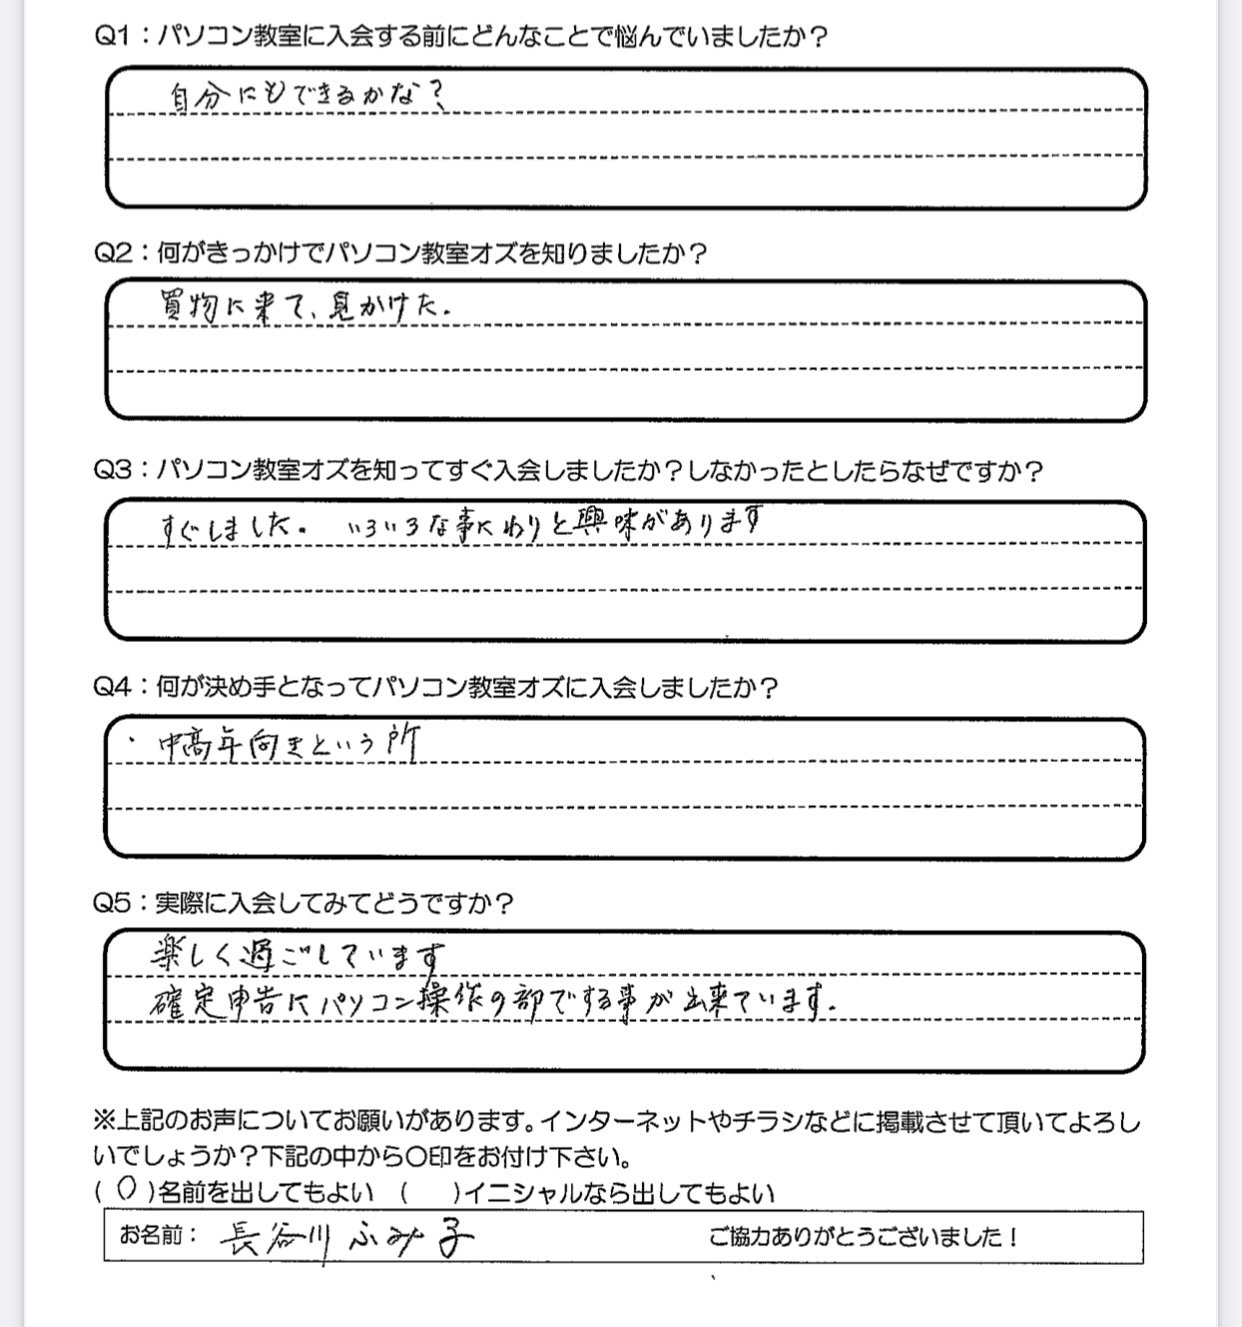 Q1：パソコン教室に入会する前にどんなことで悩んでいましたか？
自分にもできるかな？
Q2：何がきっかけでパソコン教室オズを知りましたか？
買物に来て、見かけた.
Q3：パソコン教室オズを知ってすぐ入会しましたか？しなかったとしたらなぜですか？
すぐしました。 いろいろな事にわりと興味があります
Q4：何が決め手となってパソコン教室オズに入会しましたか？
・中高年向きという所
Q5：実際に入会してみてどうですか？
楽しく過ごしています
確定申告にパソコン操作の部でする事が出来ています.
※上記のお声についてお願いがあります。インターネットやチラシなどに掲載させて頂いてよろし
いでしょうか？下記の中から〇印をお付け下さい。
( 〇 )名前を出してもよい (　 )イニシャルなら出してもよい
お名前： 長谷川 ふみ子 ご協力ありがとうございました！